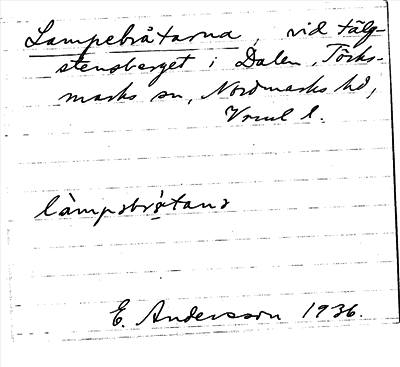 Lampebråtarna, vid tälg-
stensberget i Dalen, Töcks-
marks sn, Nordmarks hd,
Vrml l.
làmpəbrɷ̀tanə
E. Andersson 1936.